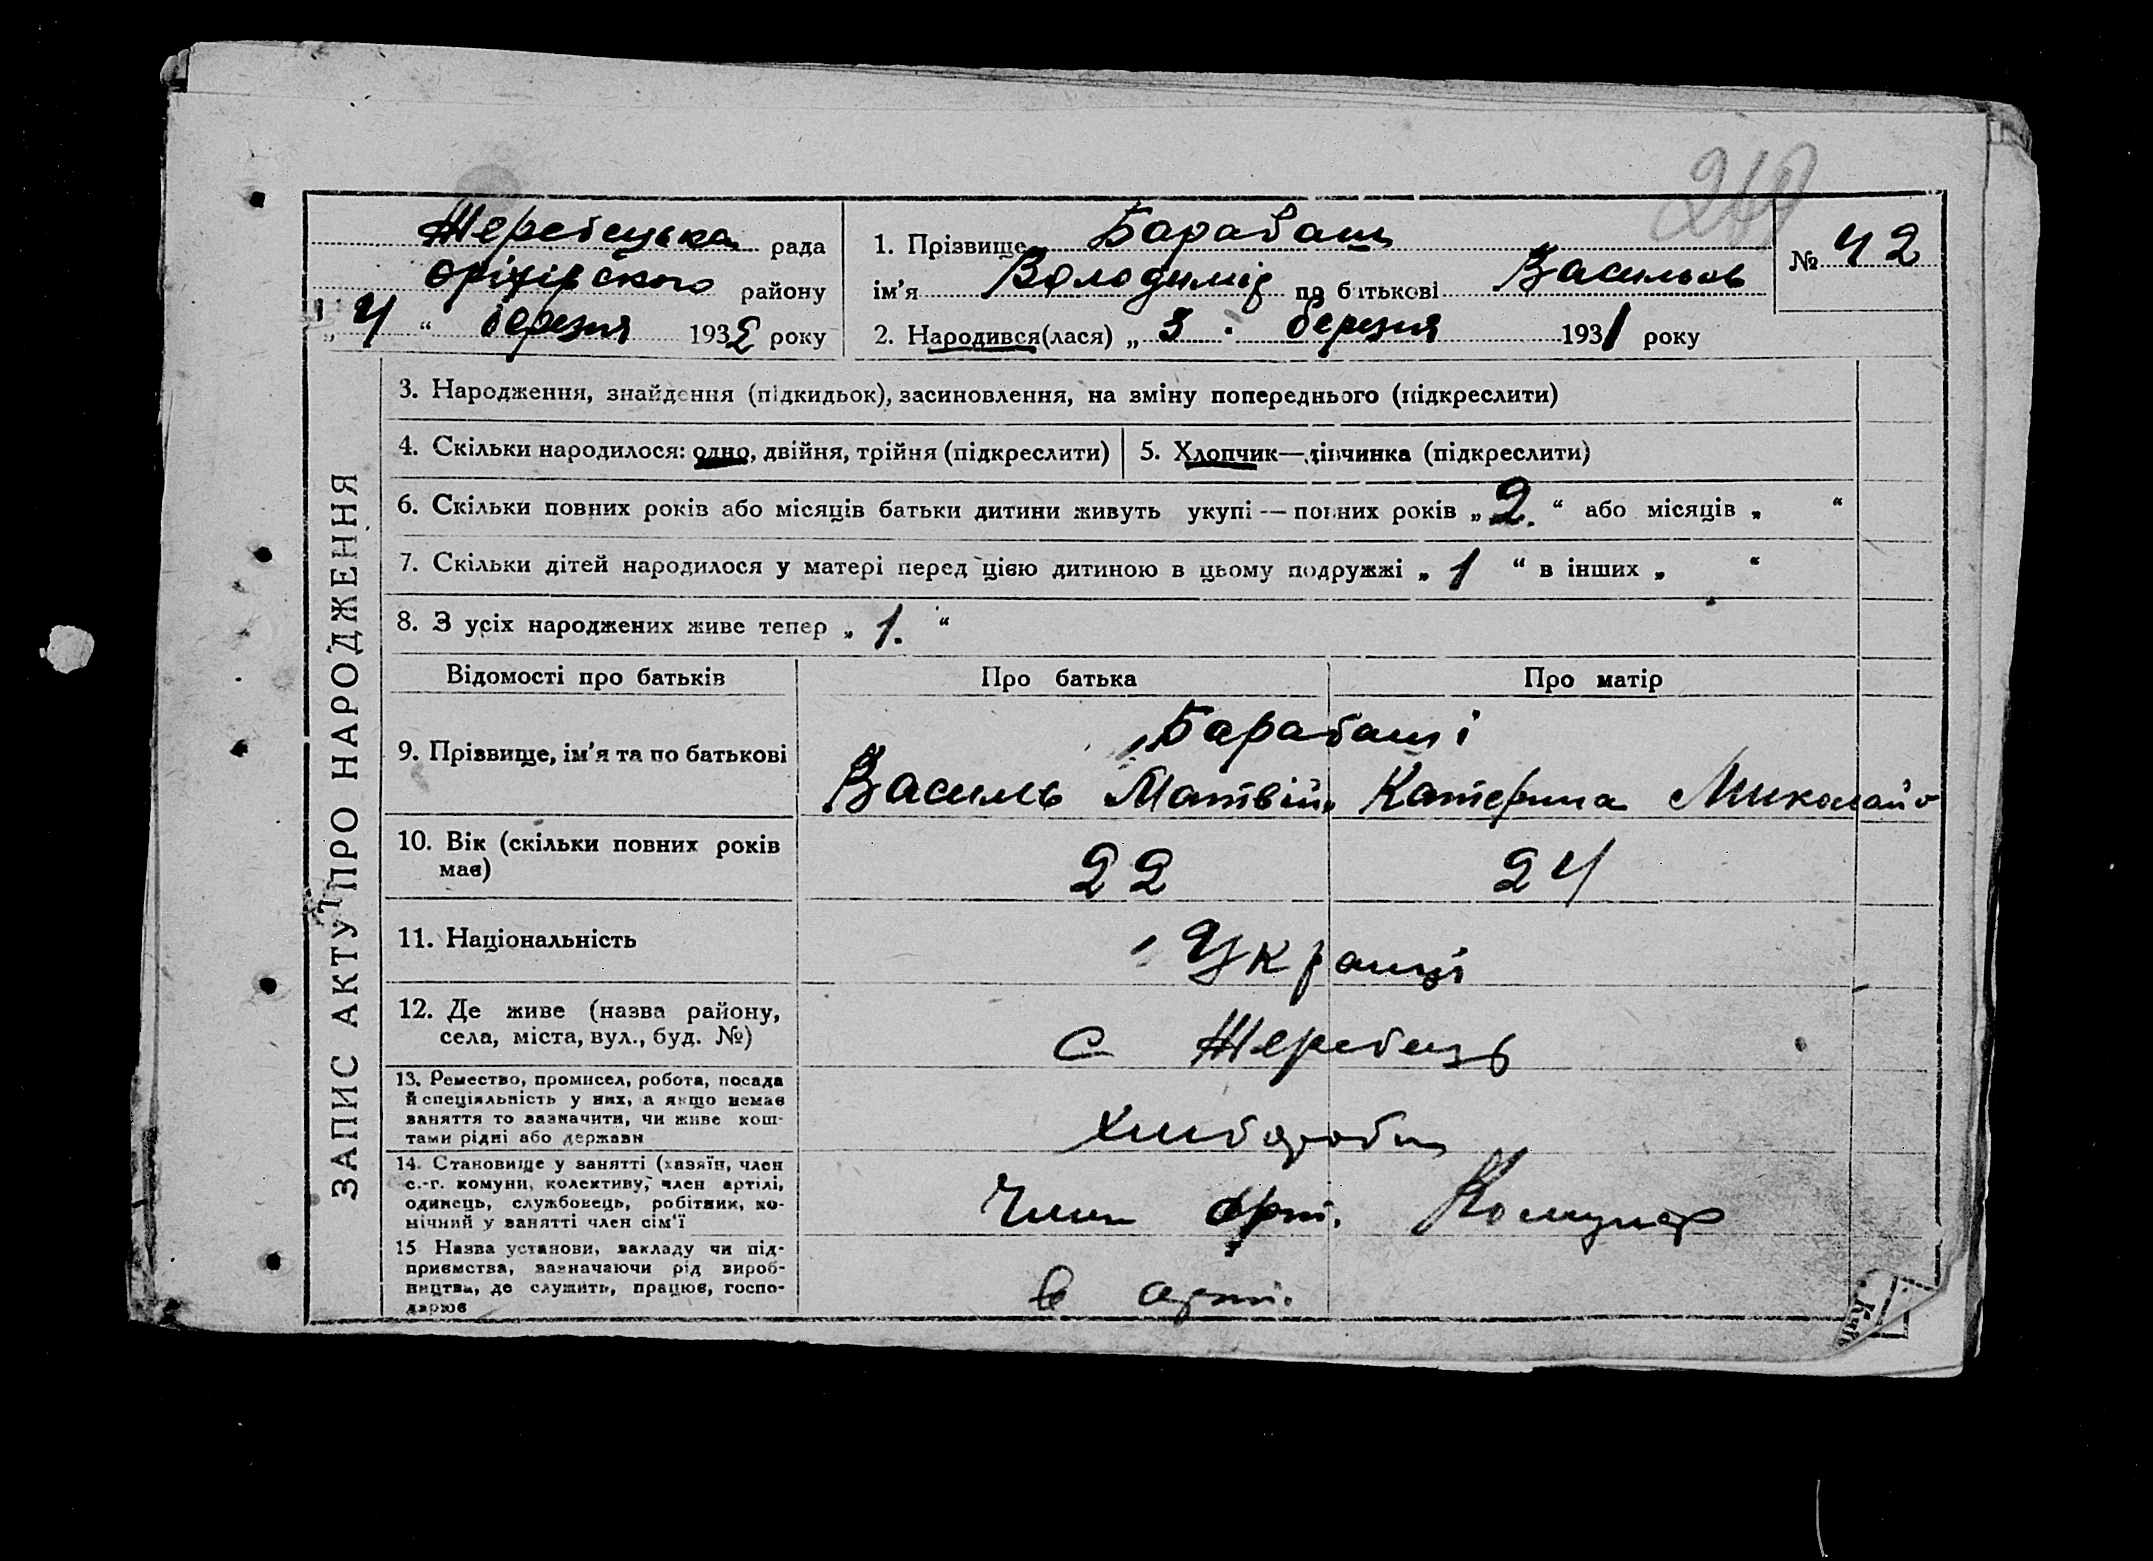 268
Жеребецька рада
Оріхівського району
„ 4 “ березня 1932 року
1. Прізвище Барабаш
ім’я Володимір по батькові Васильов
2. Народився(лася) „ 3 “ березня 1931 року
№ 42
ЗАПИС АКТУ ПРО НАРОДЖЕННЯ
3. Народження, знайдення (підкидьок), засиновлення, на зміну попереднього (підкреслити)
4. Скільки народилося: одно, двійня, трійня (підкреслити)
5. Хлопчик—дівчинка (підкреслити)
6. Скільки повних років або місяців батьки дитини живуть укупі — повних років „ 2. “ або місяців „ “
7. Скільки дітей народилося у матері перед цією дитиною в цьому подружжі „ 1 “ в інших „ “
8. З усіх народжених живе тепер „ 1. “
Відомості про батьків
Про батька
Про матір
9. Прізвище, ім’я та по батькові
Барабаші
Василь Матвій.
Катерина Миколайо
10. Вік (скільки повних років
має)
22
24
11. Національність
Українці
12. Де живе (назва району,
села, міста, вул., буд. №)
с Жеребець
13. Ремество, промисел, робота, посада
й спеціяльність у них, а якщо немає
заняття то зазначити, чи живе кош-
тами рідні або держави
Хліборобы
14. Становище у занятті (хазяїн, член
с.-г. комуни, колективу, член артілі,
одинець, службовець, робітник, по-
мічний у занятті член сім’ї
Член арт. Комунар
15 Назва установи, закладу чи під-
приємства, зазначаючи рід вироб-
ництва, де служить, працює, госпо-
дарює
в арт.